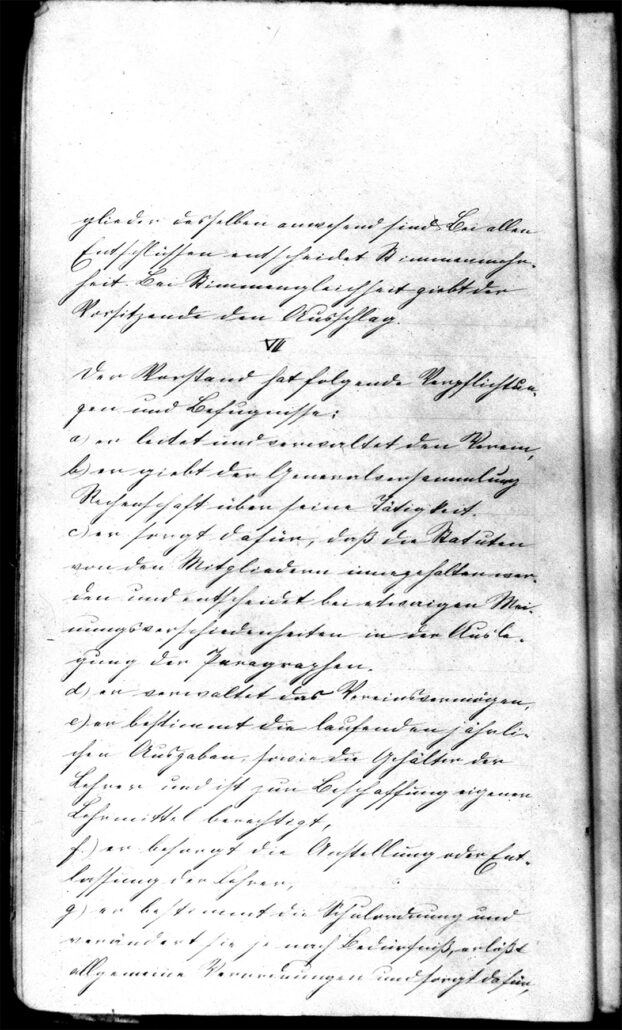 glieder desselben anwesend sind. Bei allen
Entschlüssen entscheidet Stimmenmehr-
heit. Bei Stimmengleichheit giebt der
Vorsitzende den Ausschlag.
VII
Der Vorstand hat folgende Verpflichtun-
gen und Befugnisse:
a) er leitet und verwaltet den Verein,
b) er giebt der Generalversammlung
Rechenschaft über seine Tätigkeit.
c) er sorgt dafür, daß die Statuten
von den Mitgliedern innegehalten wer-
den und entscheidet bei etwaigen Mei-
nungsverschiedenheiten in der Ausle-
gung der Paragraphen.
d) er verwaltet das Vereinsvermögen,
e) er bestimmt die laufenden jährli-
chen Ausgaben, sowie die Gehälter der
Lehrer und ist zur Beschaffung eigener
Lehrmittel berechtigt,
f) er besorgt die Anstellung oder Ent-
lassung der Lehrer,
g) er bestimmt die Schulordnung und
verändert sie je nach Bedürfniß, erläßt
allgemeine Verordnungen und sorgt dafür,